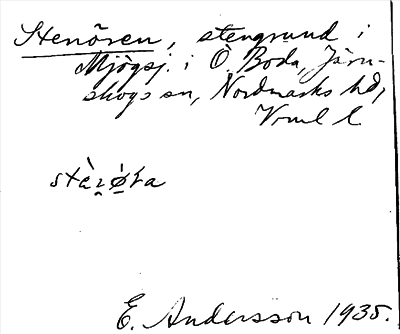 Stenören, stengrund i
Mjögsj. i Ö. Boda, Järn-
skogs sn, Nordmarks hd,
Vrml l
E. Andersson 1935.